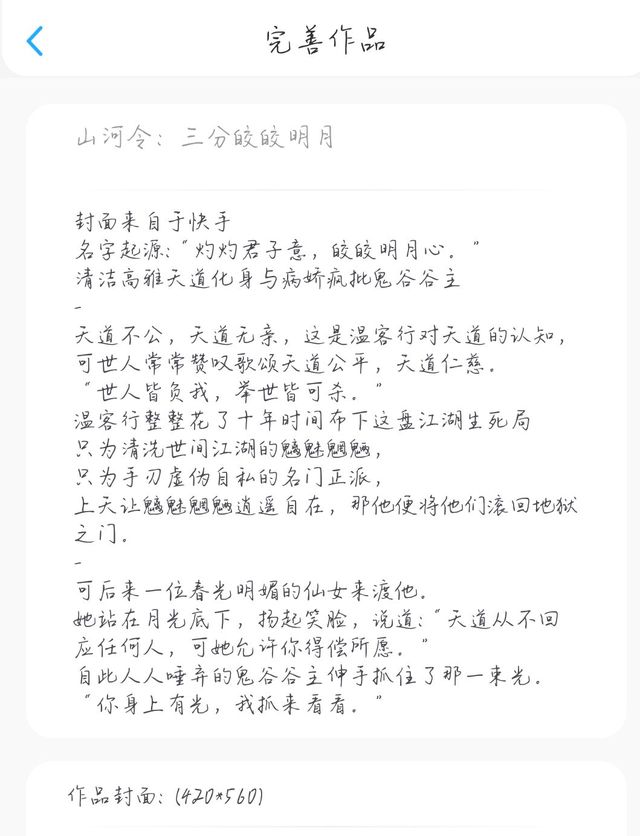 完善作品
山河令：三分皎皎明月
封面来自于快手
名字起源：“灼灼君子意，皎皎明月心。”
清洁高雅天道化身与病娇疯批鬼谷谷主
-
天道不公，天道无亲，这是温客行对天道的认知，
可世人常常赞叹歌颂天道公平，天道仁慈。
“世人皆负我，举世皆可杀。”
温客行整整花了十年时间布下这盘江湖生死局
只为清洗世间江湖的魑魅魍魉，
只为手刃虚伪自私的名门正派，
上天让魑魅魍魉逍遥自在，那他便将他们滚回地狱
之门。
-
可后来一位春光明媚的仙女来渡他。
她站在月光底下，扬起笑脸，说道：“天道从不回
应任何人，可她允许你得偿所愿。”
自此人人唾弃的鬼谷谷主伸手抓住了那一束光。
“你身上有光，我抓来看看。”
作品封面：(420*560)